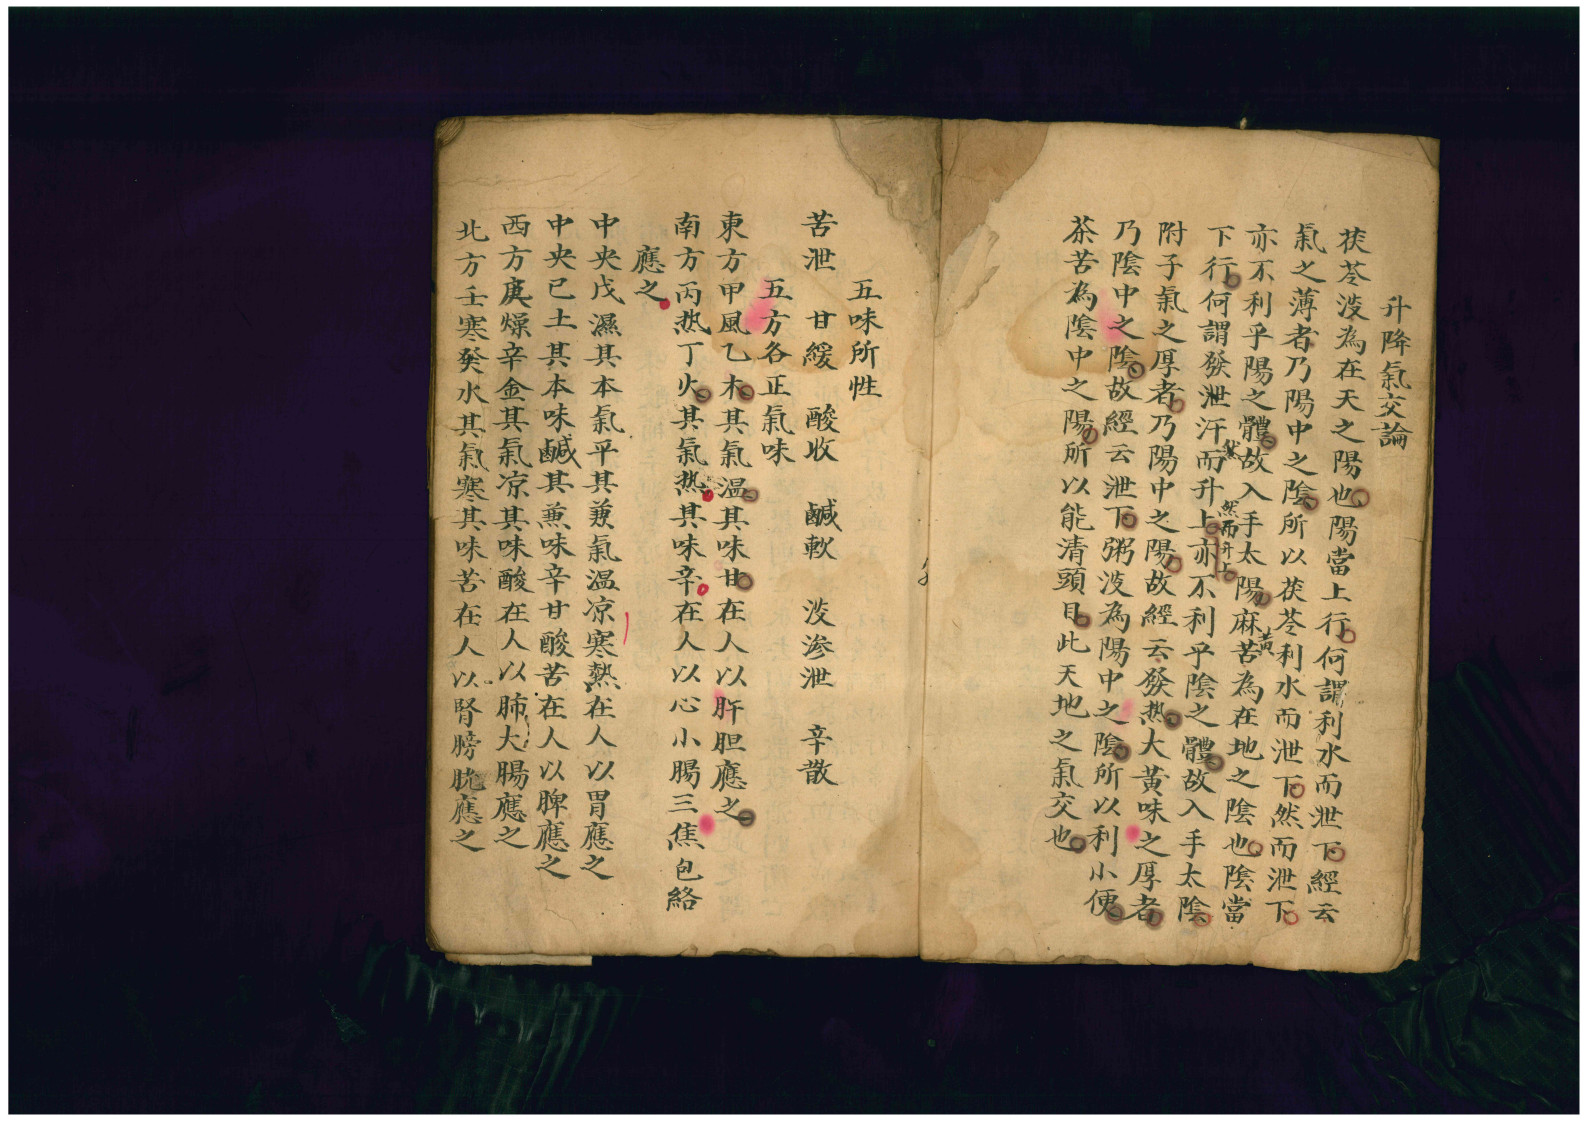 升降氣交論
茯苓淡為在天之陽也陽當上行何謂利水而泄下經云
氣之薄者乃陽中之陰所以茯苓利水而泄下然而泄下
亦不利乎陽之體故入手太陽麻黃苦為在地之陰也陰當
下行何謂發泄汗而升上然而升上亦不利乎陰之體故入手太陰
附子氣之厚者乃陽中之陽故經云發热大黄味之厚者
乃陰中之陰故經云泄下粥淡為陽中之陰所以利小便
茶苦為陰中之陽所以能清頭目此天地之氣交也
五味所性
苦泄 甘緩 酸收 鹹軟 淡渗泄 辛散
五方各正氣味
東方甲風乙木其氣温其味甘在人以肝胆應之
南方丙热丁火其氣热其味辛在人以心小腸三焦包絡
應之
中央戊濕其本氣平其兼氣温凉寒熱在人以胃應之
中央已土其本味鹹其兼味辛甘酸苦在人以脾應之
西方庚燥辛金其氣凉其味酸在人以肺大腸應之
北方壬寒癸水其氣寒其味苦在人以腎膀胱應之